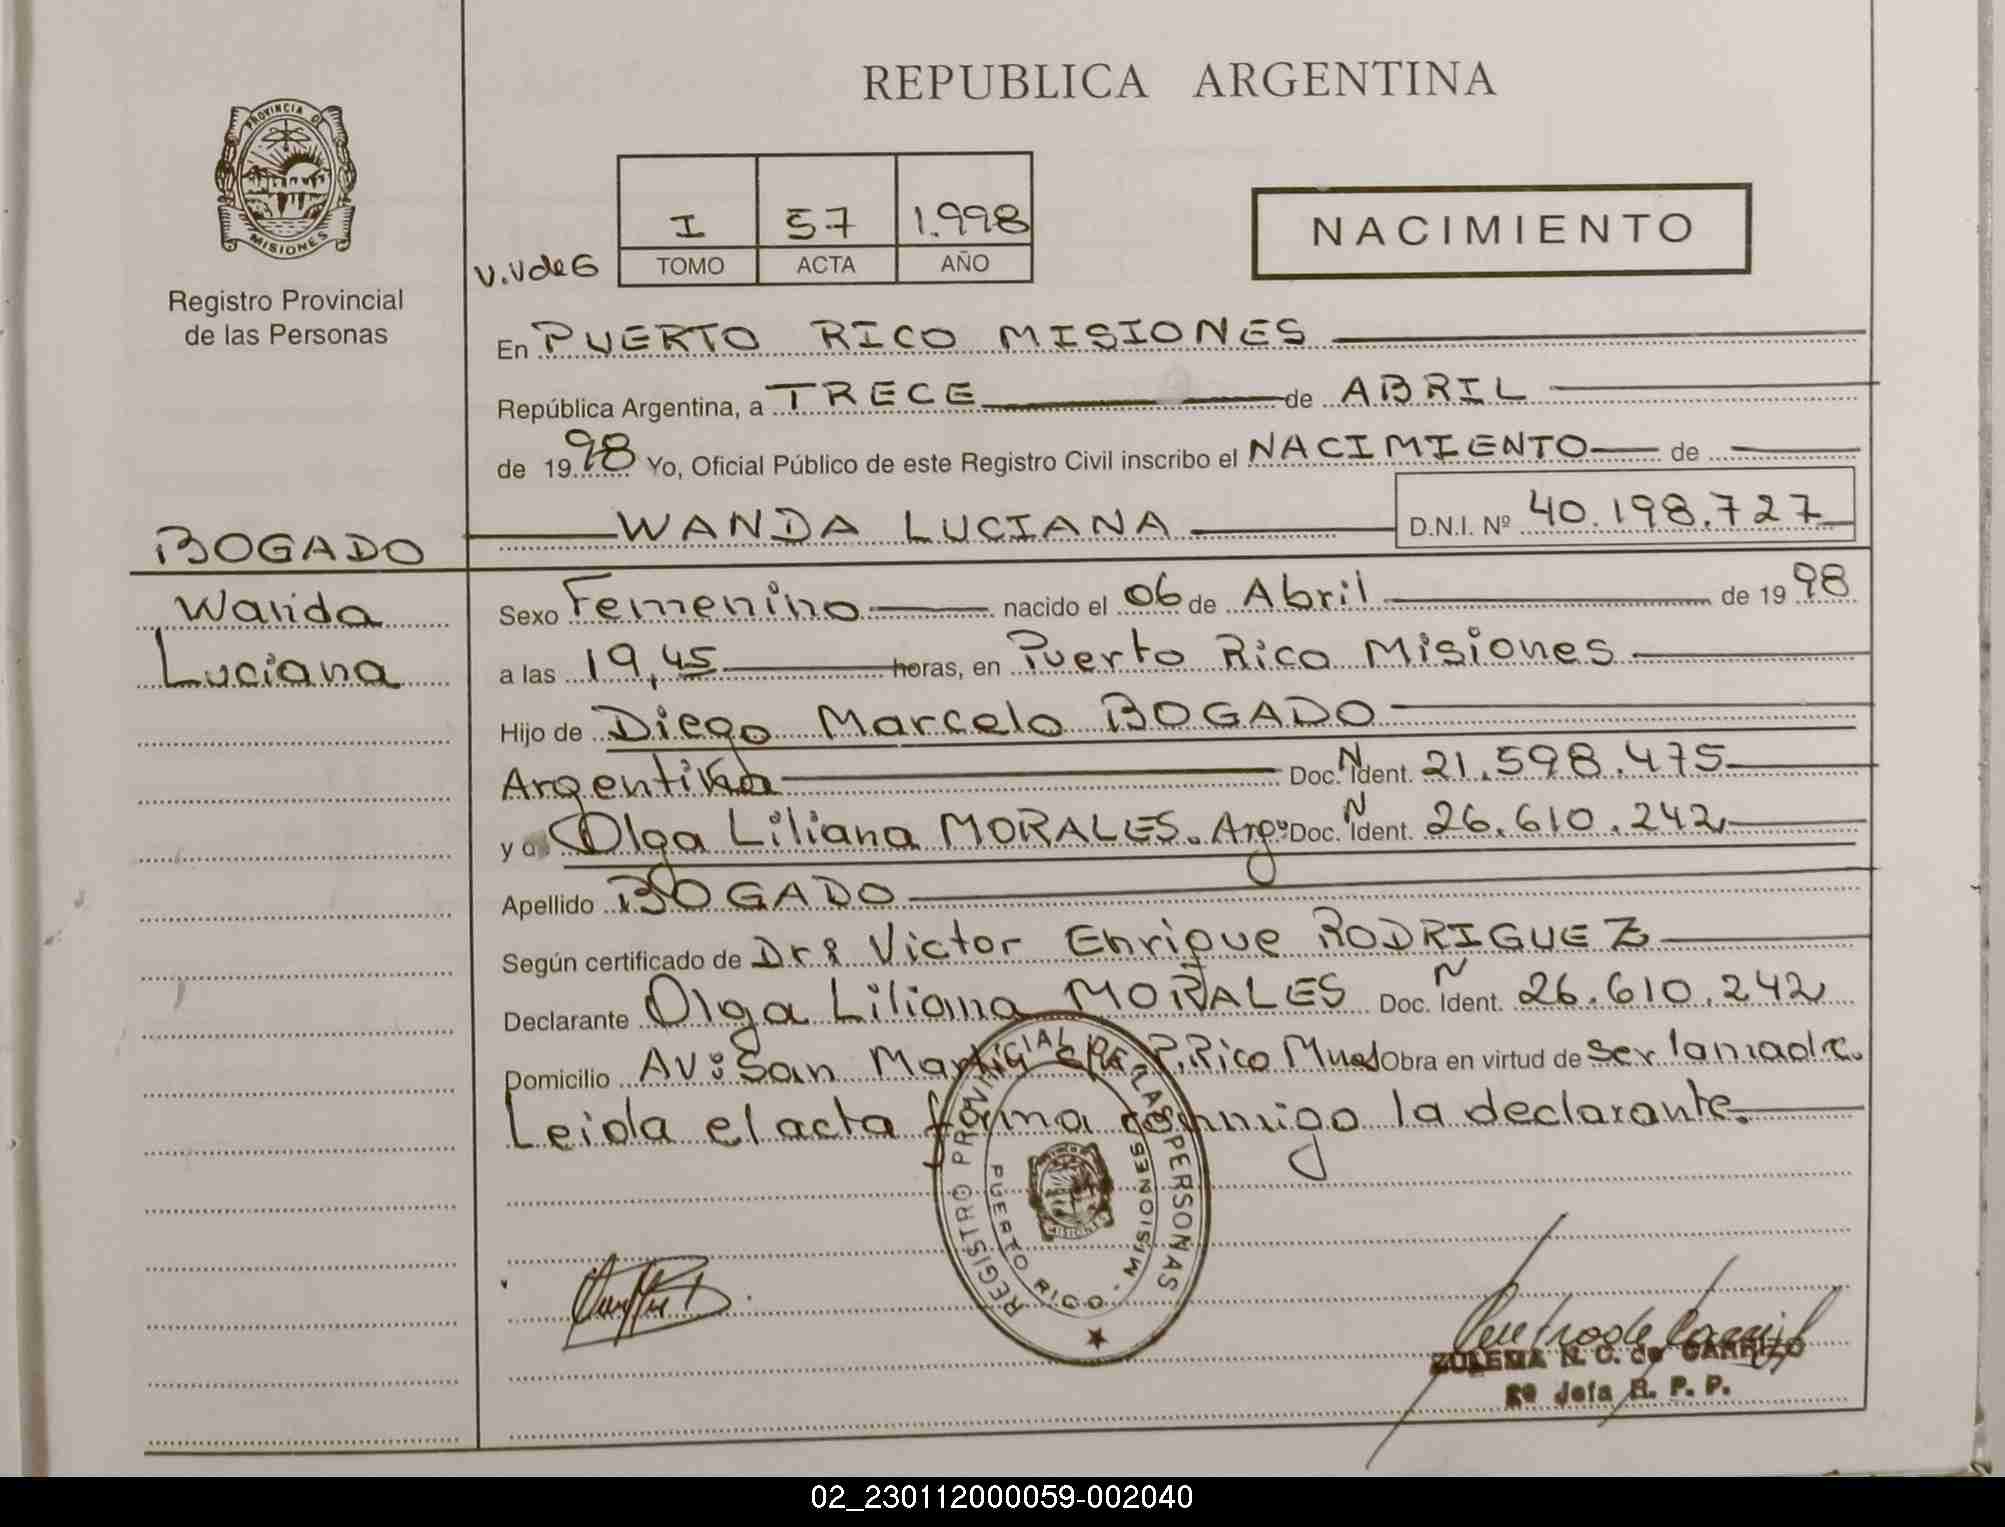 REPUBLICA ARGENTINA
PROVINCIA D
MISIONES
Registro Provincial
de las Personas
I 57 1.998
V.VdeG TOMO ACTA AÑO
NACIMIENTO
En PUERTO RICO MISIONES
República Argentina, a TRECE de ABRIL
de 1998 Yo, Oficial Público de este Registro Civil inscribo el NACIMIENTO de
WANDA LUCIANA D.N.I. Nº 40.198.727
BOGADO
Wanda
Luciana
Sexo Femenino nacido el 06 de Abril de 1998
a las 19,45 horas, en Puerto Rico Misiones
Hijo de Diego Marcelo BOGADO
Argentina Doc. N Ident. 21.598.475
y a Olga Liliana MORALES. Argº Doc. N Ident. 26.610.242
Apellido BOGADO
Según certificado de Dr: Victor Enrique RODRIGUEZ
Declarante Olga Liliana MORALES Doc. N Ident. 26.610.242
Domicilio Av: San Martin P.Rico Mnes Obra en virtud de ser la madre.
Leida el acta firma conmigo la declarante.
REGISTRO PROVINCIAL DE LAS PERSONAS
PUERTO RICO - MISIONES
MISIONES
ZULEMA N. C. de CARRIZO
2º Jefa R. P. P.
02_230112000059-002040